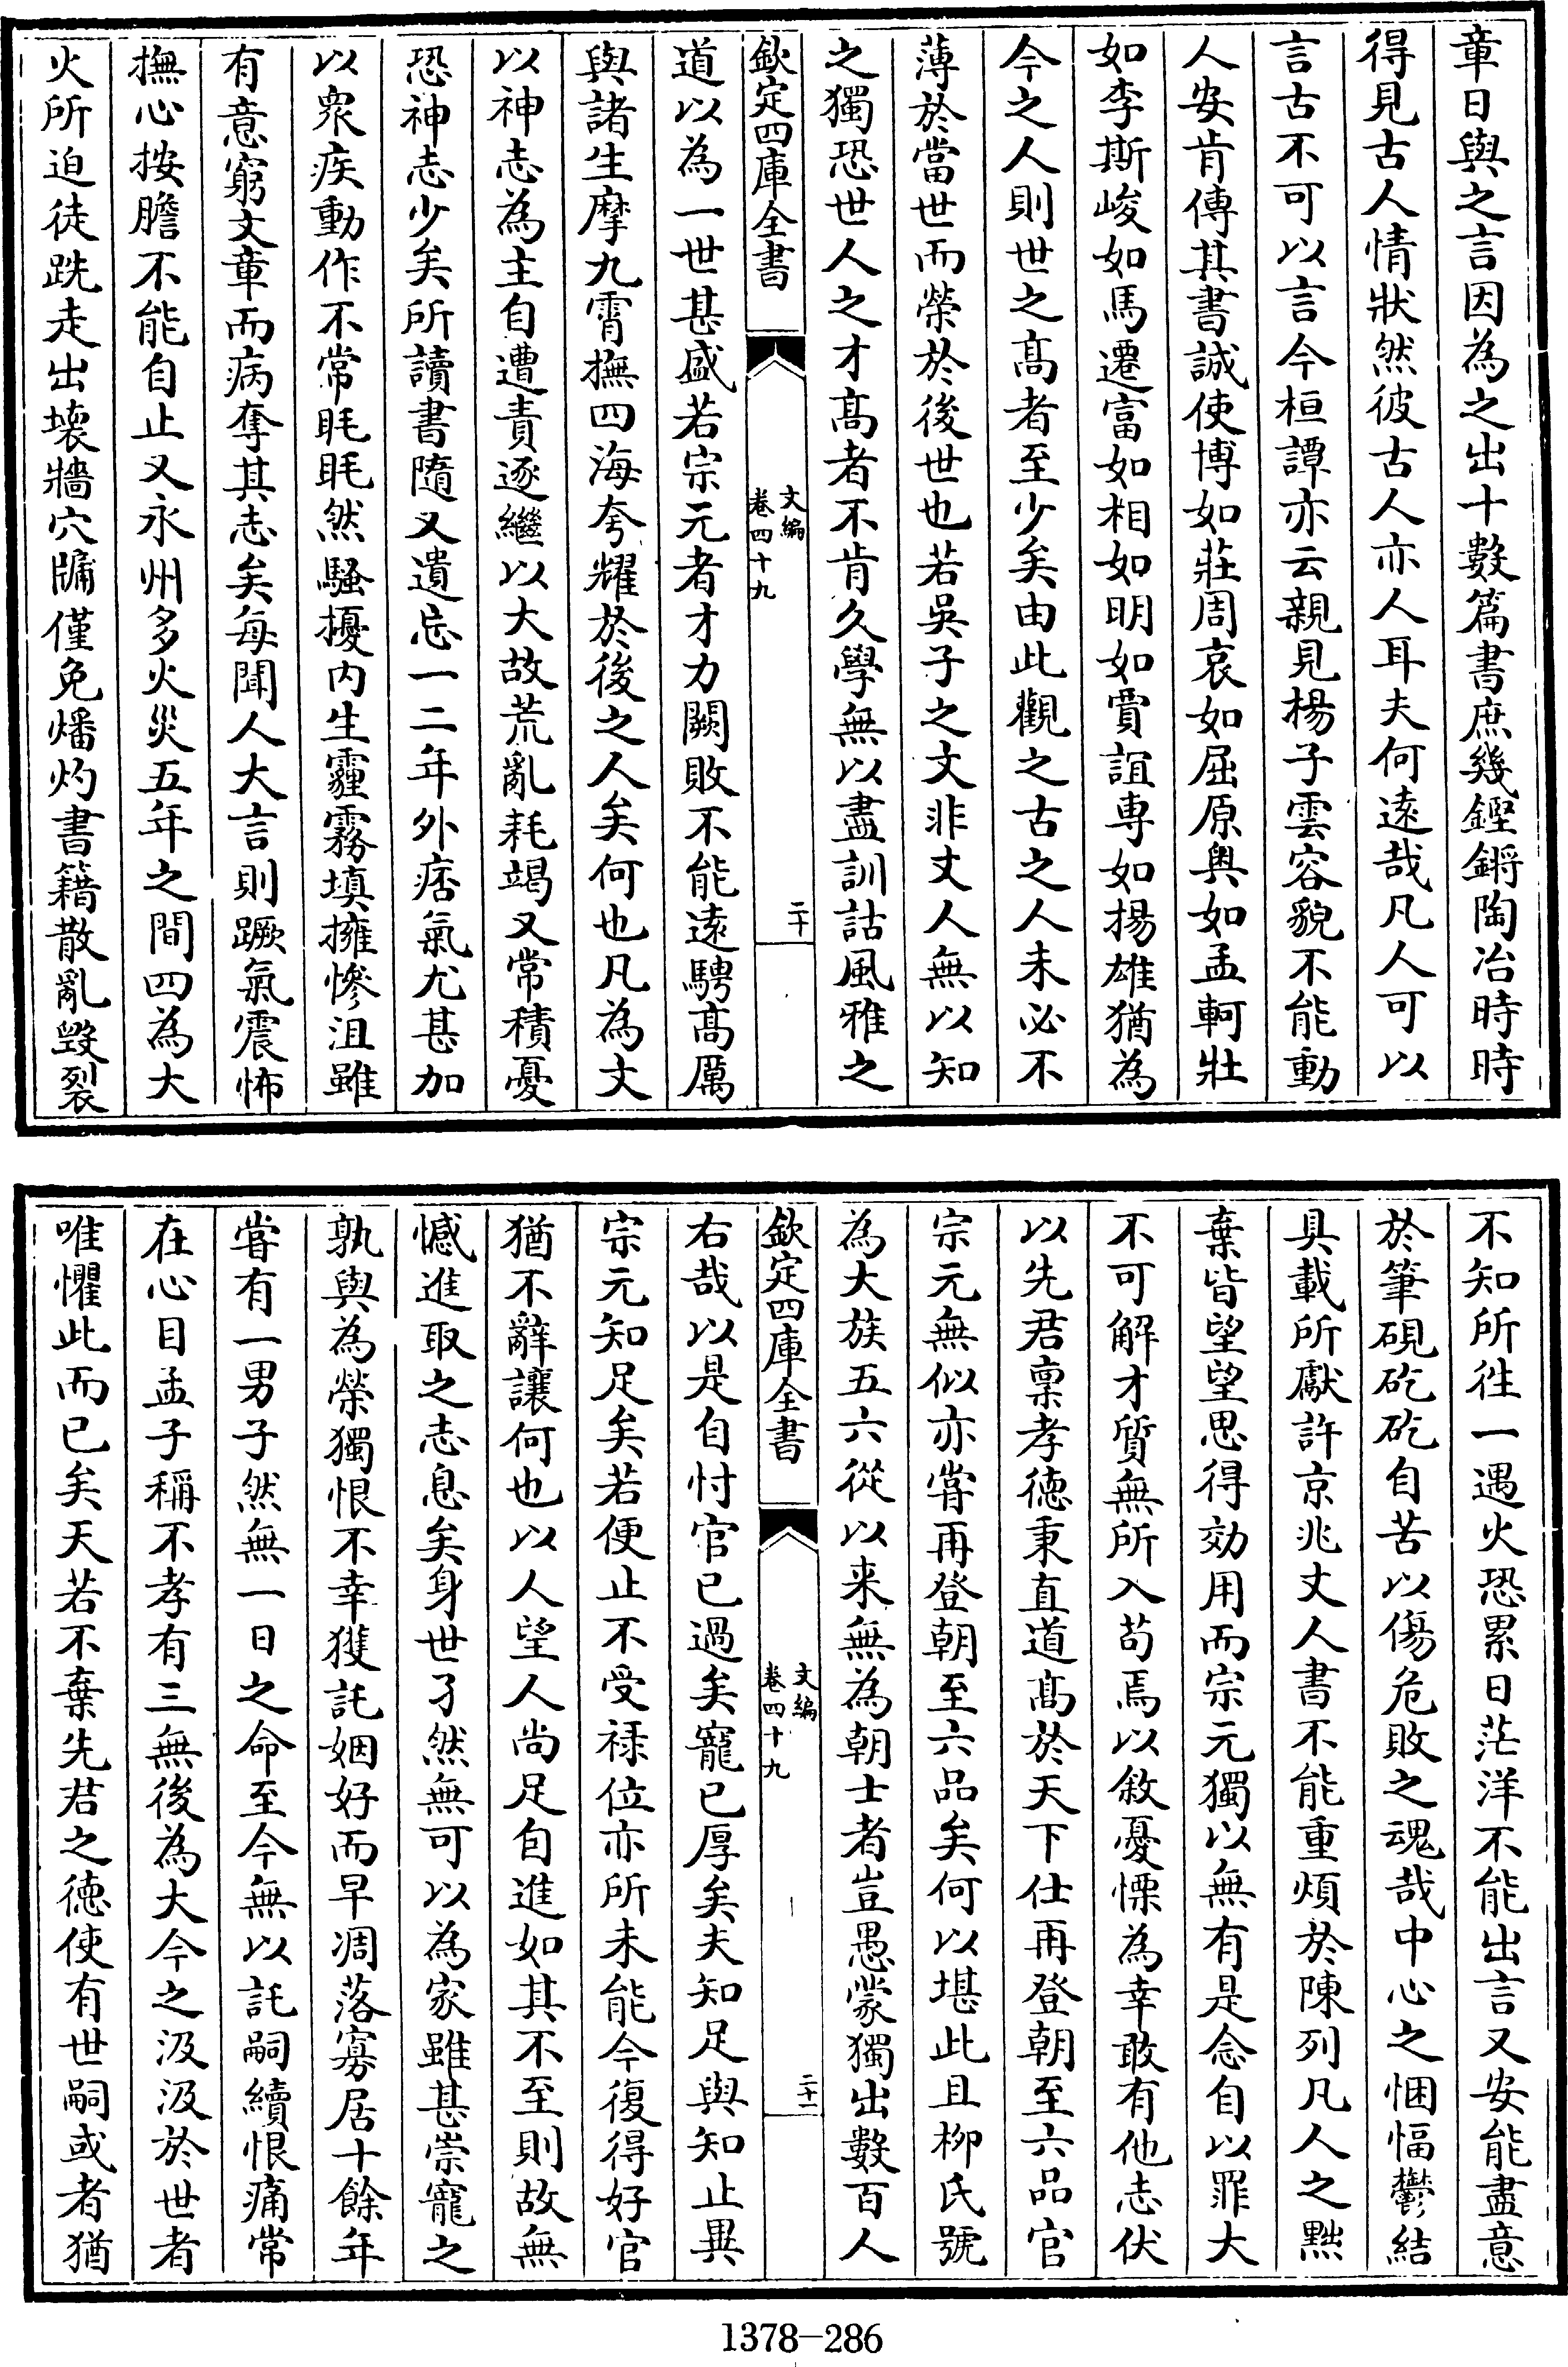 章日與之言因為之出十數篇書庶幾鏗鏘陶冶時時
得見古人情狀然彼古人亦人耳夫何逺哉凡人可以
言古不可以言今桓譚亦云親見楊子雲容貌不能動
人安肯傳其書誠使博如莊周哀如屈原奥如孟軻壯
如李斯峻如馬遷富如相如明如賈誼専如揚雄猶為
今之人則世之髙者至少矣由此觀之古之人未必不
薄於當世而榮於後世也若吳子之文非丈人無以知
之獨恐世人之才髙者不肯久學無以盡訓詁風雅之
欽定四庫全書
文編
卷四十九
二十
道以為一世甚盛若宗元者才力闕敗不能逺騁髙厲
與諸生摩九霄撫四海夸耀於後之人矣何也凡為文
以神志為主自遭責逐繼以大故荒亂耗竭又常積憂
恐神志少矣所讀書隨又遺忘一二年外痞氣尤甚加
以衆疾動作不常眊眊然騷擾内生霾霧填擁慘沮雖
有意窮文章而病奪其志矣每聞人大言則蹶氣震怖
撫心按膽不能自止又永州多火災五年之間四為大
火所迫徒跣走出壊牆穴牖僅免燔灼書籍散亂毁裂
不知所徃一遇火恐累日茫洋不能出言又安能盡意
於筆硯矻矻自苦以傷危敗之魂哉中心之悃愊鬱結
具載所獻許京兆丈人書不能重煩於陳列凡人之黜
棄皆望望思得効用而宗元獨以無有是念自以罪大
不可解才質無所入苟焉以敘憂慄為幸敢有他志伏
以先君禀孝徳秉直道髙於天下仕再登朝至六品官
宗元無似亦嘗再登朝至六品矣何以堪此且柳氏號
為大族五六從以来無為朝士者豈愚蒙獨出數百人
欽定四庫全書
文編
卷四十九
二十一
右哉以是自忖官已過矣寵已厚矣夫知足與知止異
宗元知足矣若便止不受禄位亦所未能今復得好官
猶不辭讓何也以人望人尚足自進如其不至則故無
憾進取之志息矣身世孑然無可以為家雖甚崇寵之
孰與為榮獨恨不幸獲託姻好而早凋落寡居十餘年
嘗有一男子然無一日之命至今無以託嗣續恨痛常
在心目孟子稱不孝有三無後為大今之汲汲於世者
唯懼此而已矣天若不棄先君之徳使有世嗣或者猶
1378-286